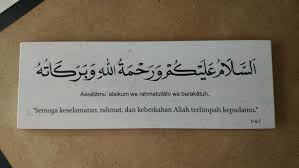 اَلسَّلَامُ عَلَيْكُمْ وَرَحْمَةُ اللهِ وَبَرَكَاتُهُ
Assalāmu 'alaikum wa rahmatullāhi wa barakātuh.
"Semoga keselamatan, rahmat, dan keberkahan Allah terlimpah kepadamu."